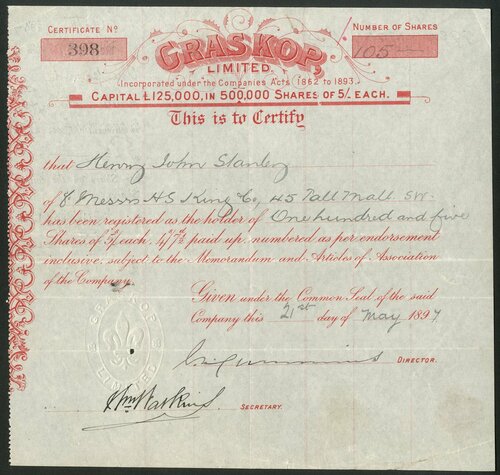 CERTIFICATE No
398
GRASKOP,
LIMITED.
NUMBER OF SHARES
105
Incorporated under the Companies Acts 1862 to 1893.
CAPITAL £125,000, IN 500,000 SHARES OF 5/- EACH.
This is to Certify
that Henry John Stanley
of c/o Messrs H S King & Co, 45 Pall Mall. SW.
has been registered as the holder of One hundred and five
Shares of 5/- each, paid up, numbered as per endorsement
inclusive, subject to the Memorandum and Articles of Association
of the Company.
Given under the Common Seal of the said
Company this 21st day of May 1897
DIRECTOR.
SECRETARY.
GRASKOP
LIMITED